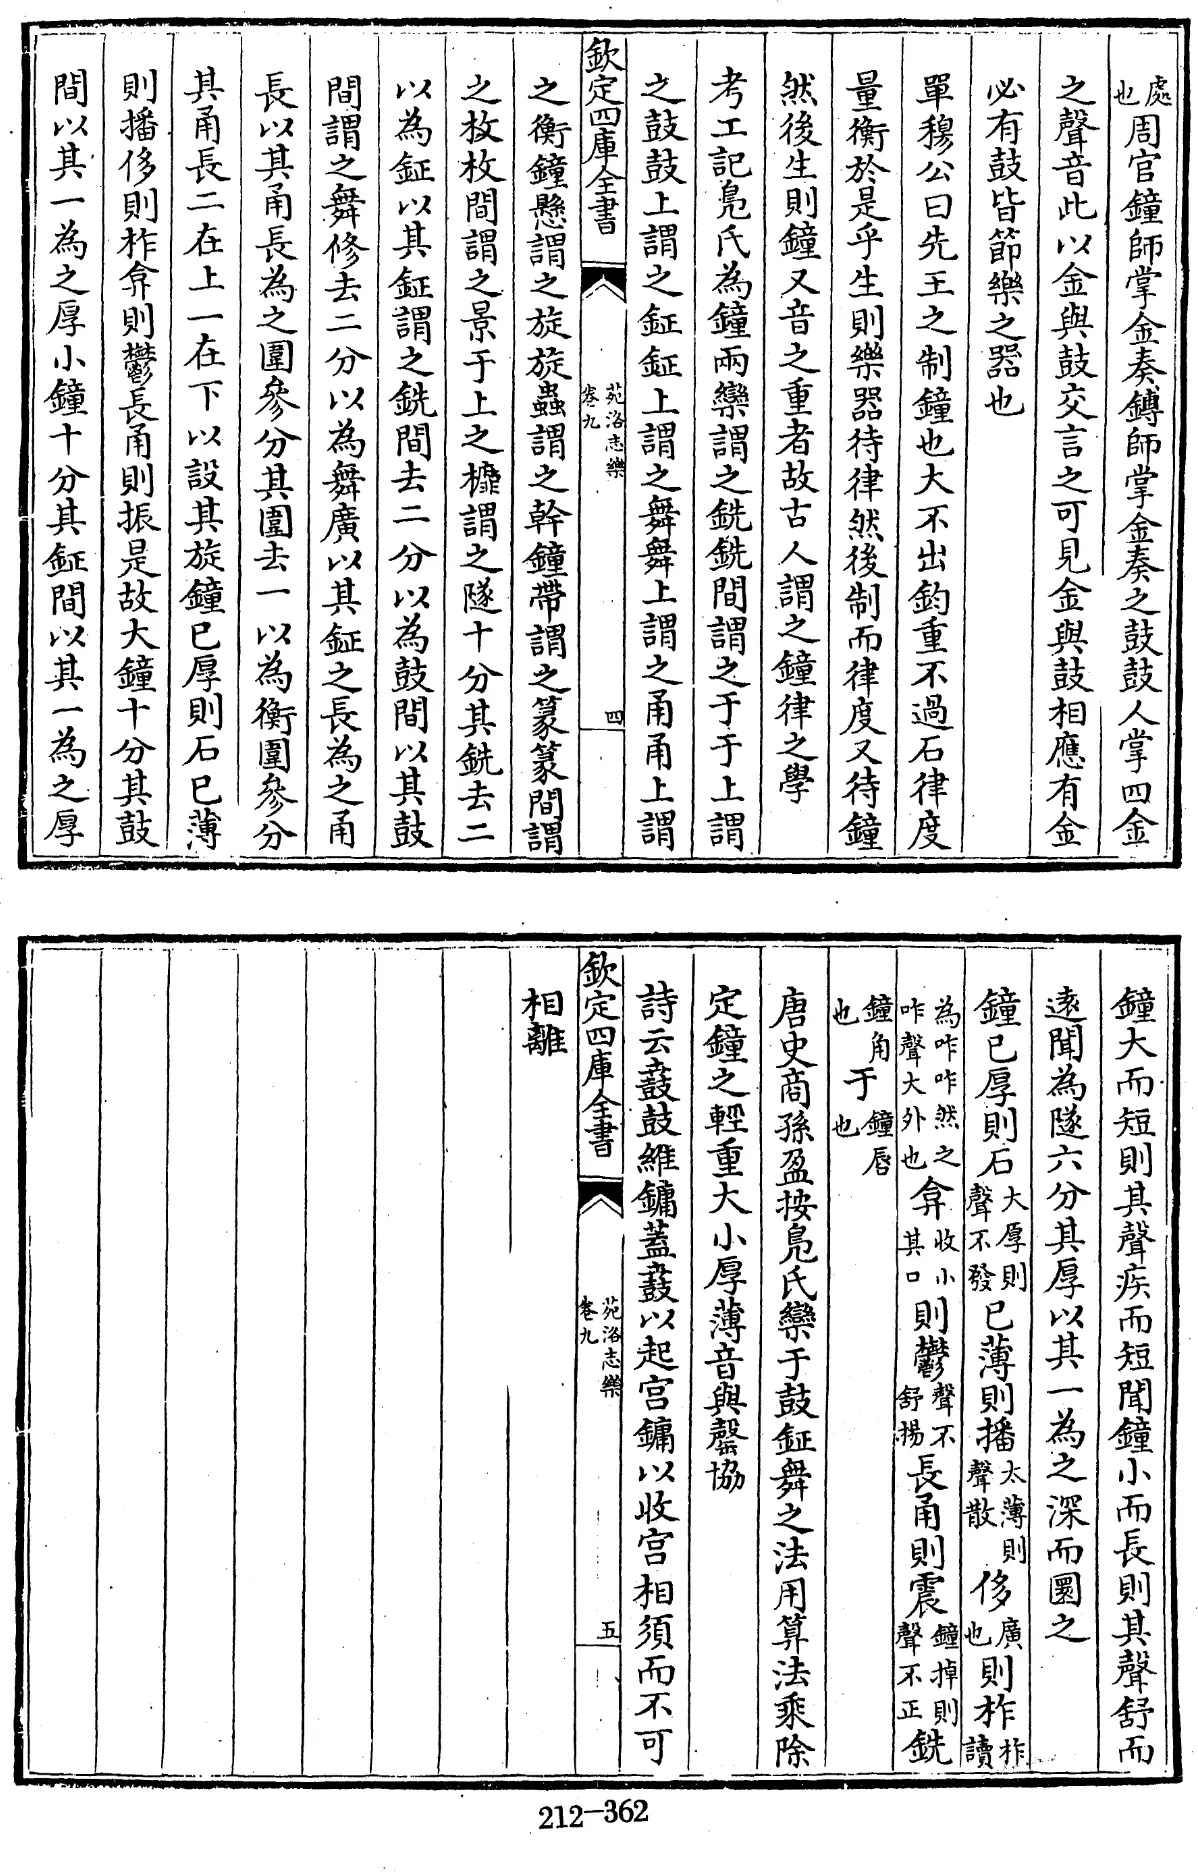 處也周官鐘師掌金奏鎛師掌金奏之鼓鼓人掌四金
之聲音此以金與鼓交言之可見金與鼓相應有金
必有鼓皆節樂之器也
單穆公曰先王之制鐘也大不出鈞重不過石律度
量衡於是乎生則樂器待律然後制而律度又待鐘
然後生則鐘又音之重者故古人謂之鐘律之學
考工記鳧氏為鐘兩欒謂之銑銑間謂之于于上謂
之鼓鼓上謂之鉦鉦上謂之舞舞上謂之甬甬上謂
欽定四庫全書
苑洛志樂
卷九
四
之衡鐘懸謂之旋旋蟲謂之幹鐘帶謂之篆篆間謂
之枚枚間謂之景于上之㯢謂之隧十分其銑去二
以為鉦以其鉦謂之銑間去二分以為鼓間以其鼓
間謂之舞修去二分以為舞廣以其鉦之長為之甬
長以其甬長為之圍參分其圍去一以為衡圍參分
其甬長二在上一在下以設其旋鐘已厚則石已薄
則播侈則柞弇則鬱長甬則振是故大鐘十分其鼓
間以其一為之厚小鐘十分其鉦間以其一為之厚
鐘大而短則其聲疾而短聞鐘小而長則其聲舒而
遠聞為隧六分其厚以其一為之深而圜之
鐘已厚則石大厚則聲不發已薄則播太薄則聲散侈廣也則柞柞讀
為咋咋然之咋聲大外也弇收小其口則鬱聲不舒揚長甬則震鐘掉則聲不正銑
鐘角也于鐘唇也
唐史商孫盈按鳧氏欒于鼓鉦舞之法用算法乘除
定鐘之輕重大小厚薄音與罄協
詩云鼖鼓維鏞蓋鼖以起宮鏞以收宮相須而不可
欽定四庫全書
苑洛志樂
卷九
五
相離
212-362